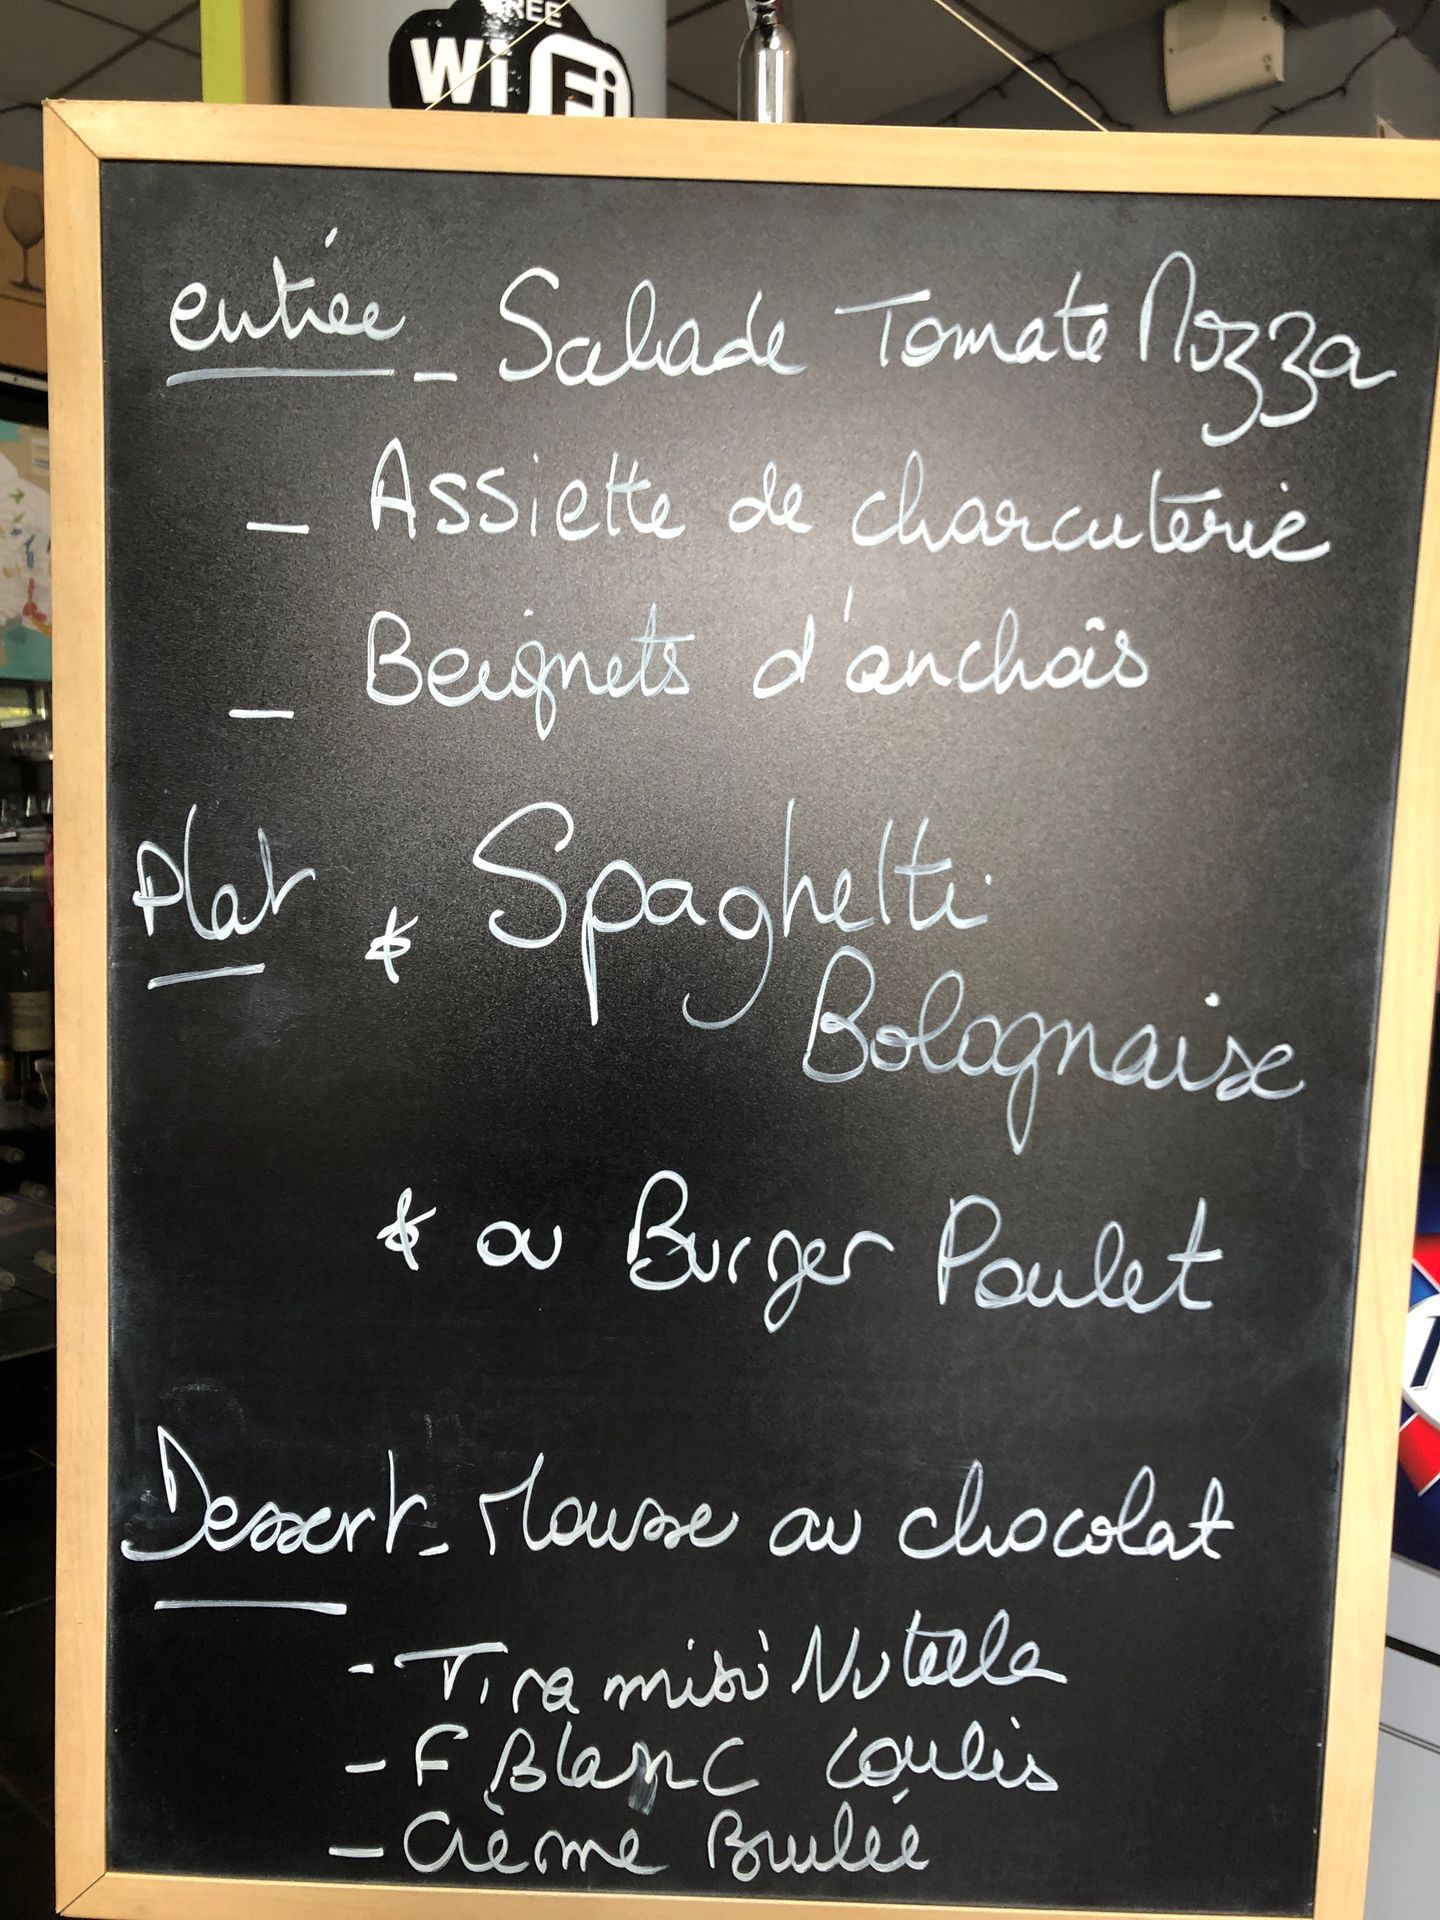 FREE
Wi Fi
entrée - Salade Tomate Mozza
- Assiette de charcuterie
- Beignets d'anchois
Plat * Spaghetti
Bolognaise
* ou Burger Poulet
Dessert - Mousse au chocolat
- Tiramisu Nutella
- F Blanc Coulis
- Crème Brulée